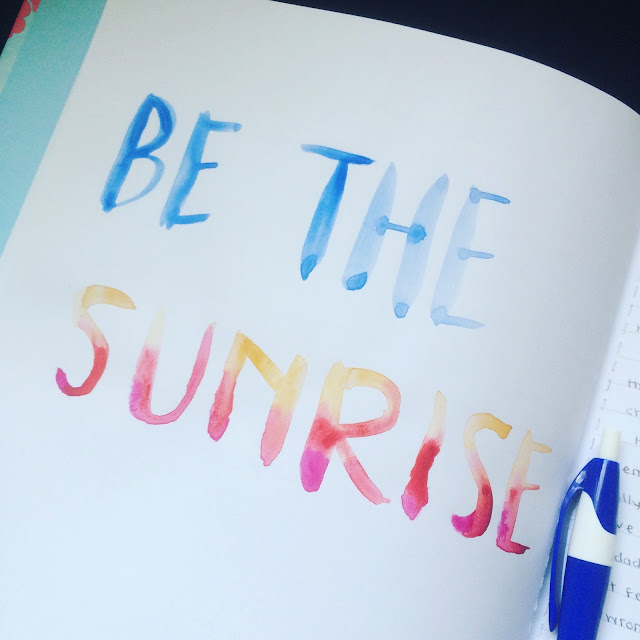 BE THE
SUNRISE